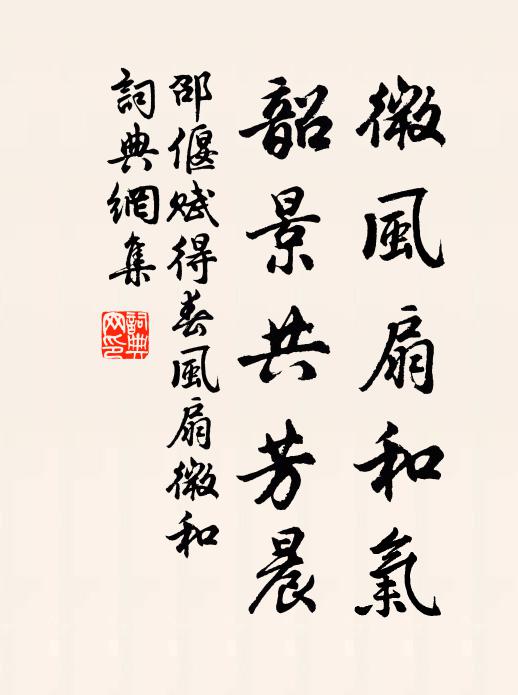 微風扇和氣
韶景共芳晨
邵偃賦得春風扇微和
詞典網集
詞典网印